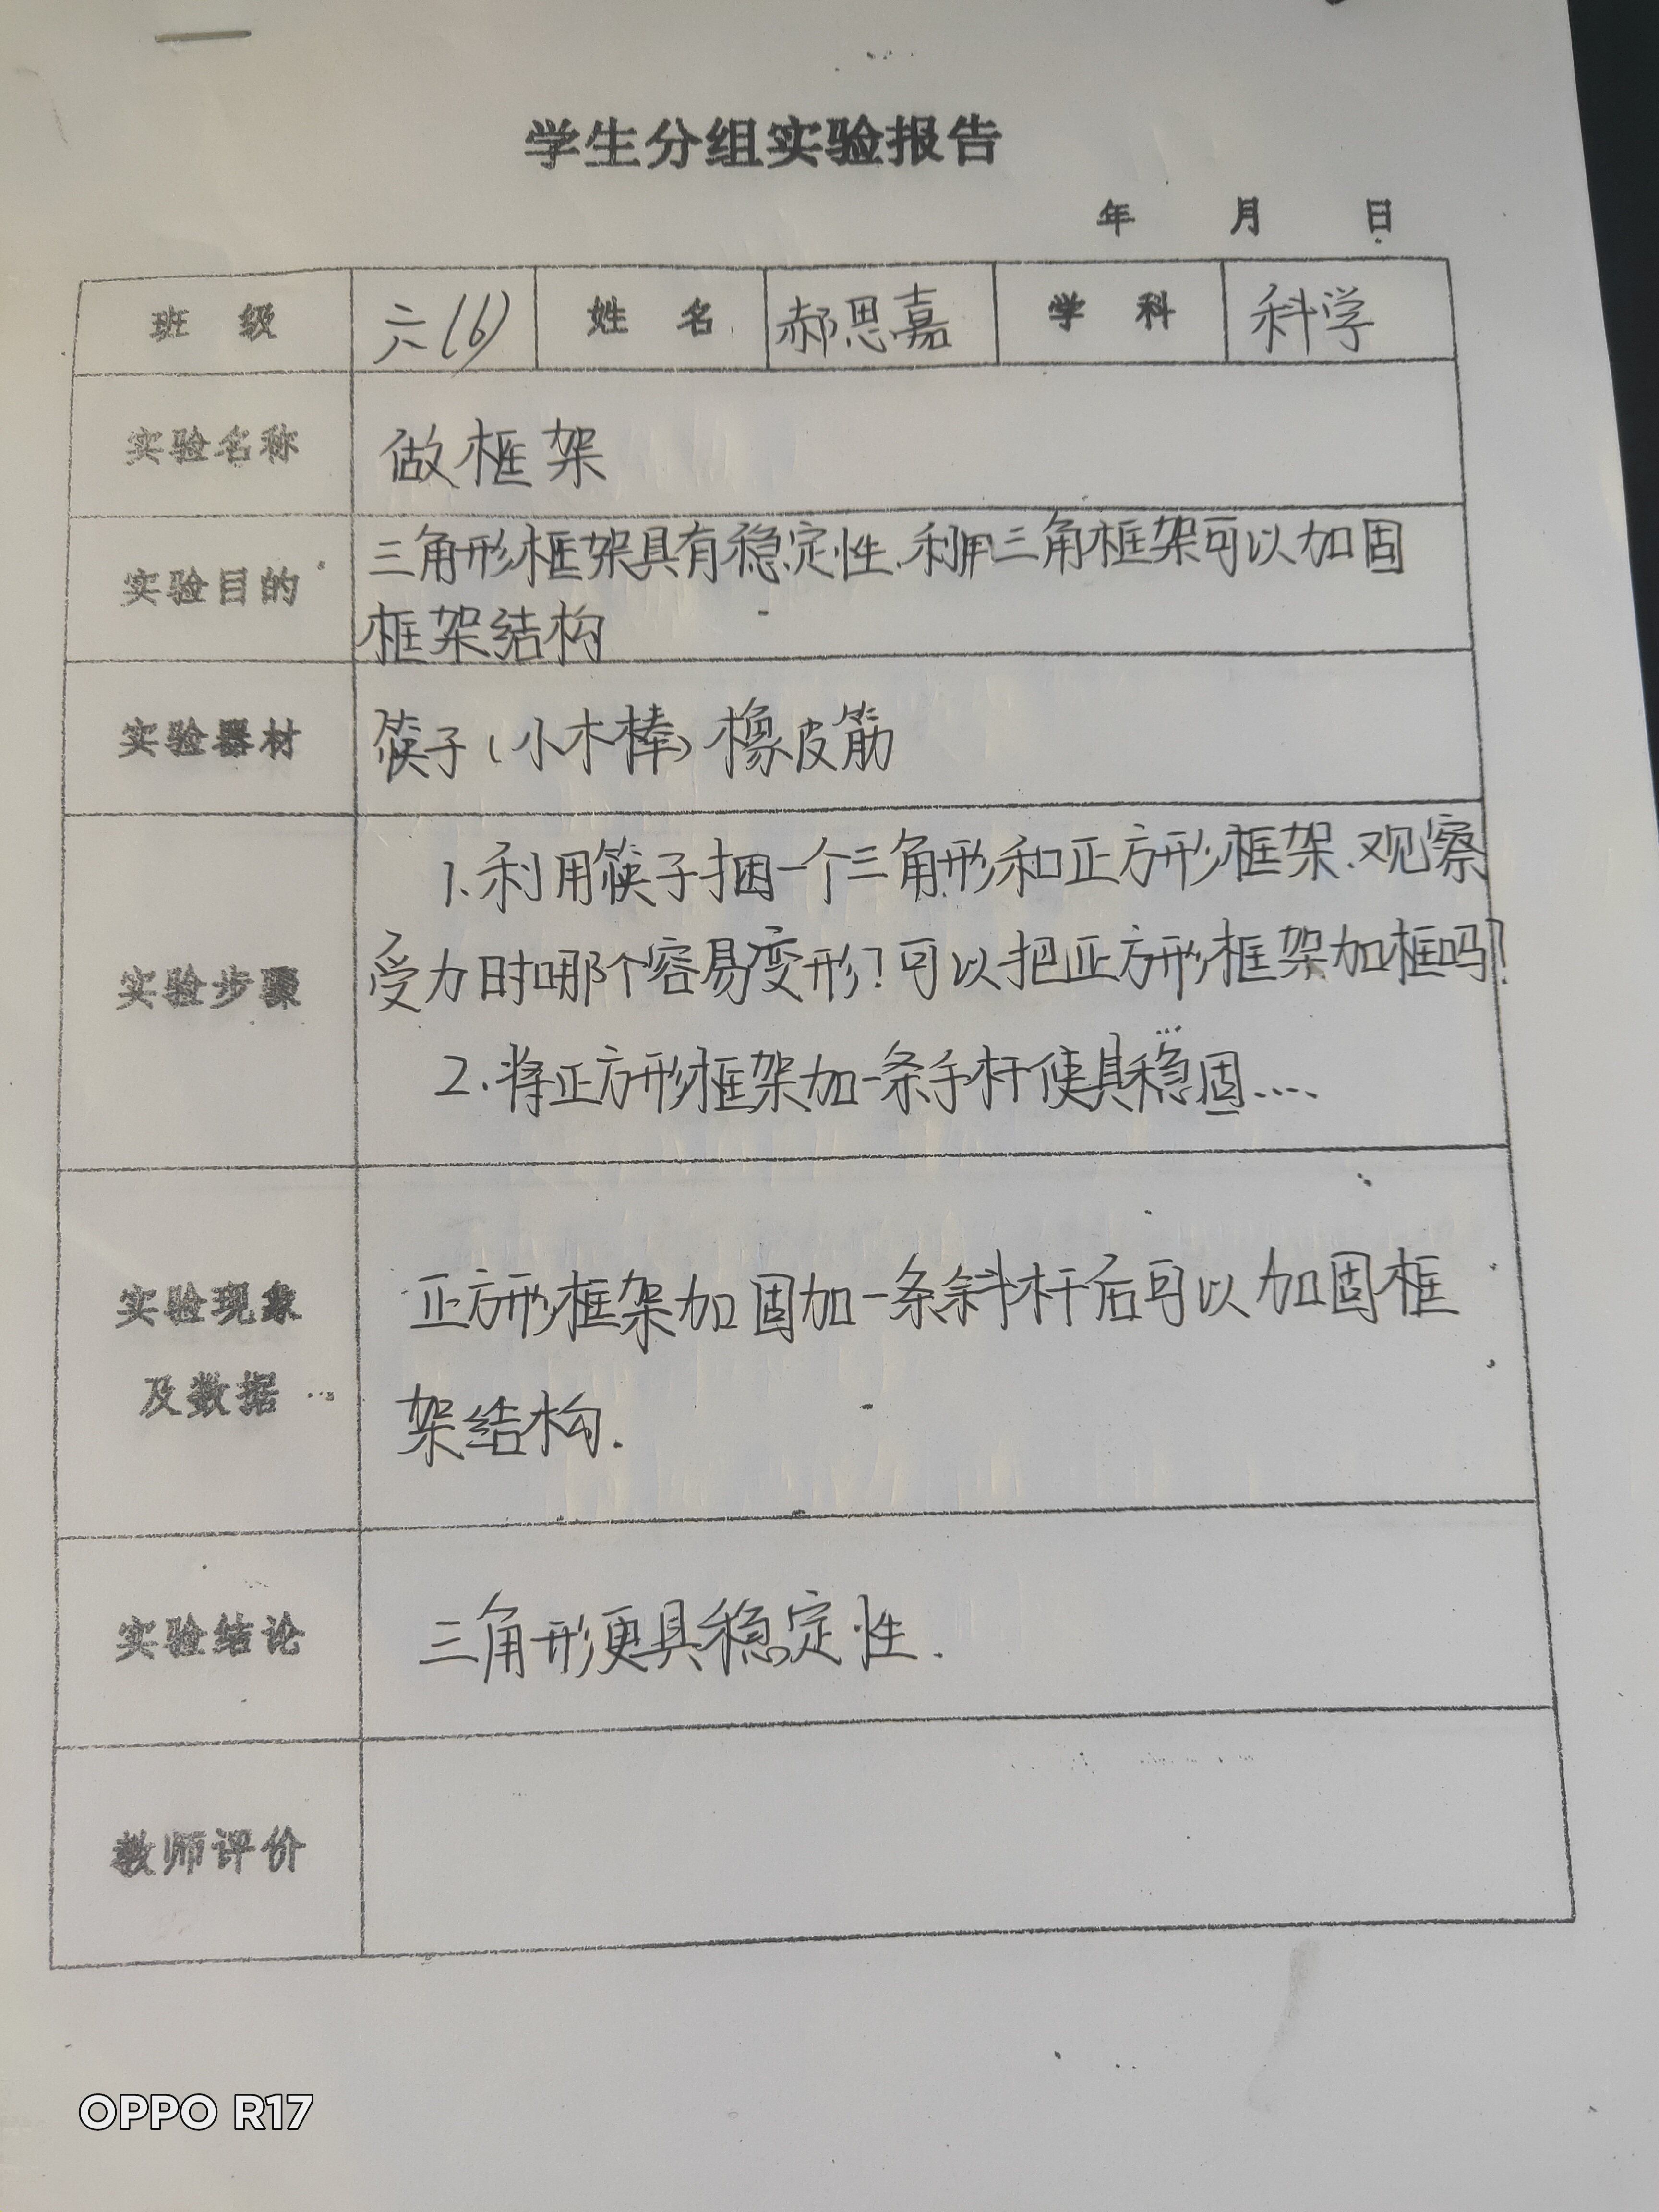 学生分组实验报告
年 月 日
班 级 六(6) 姓 名 郝思嘉 学 科 科学
实验名称 做框架
实验目的 三角形框架具有稳定性.利用三角框架可以加固
框架结构
实验器材 筷子(小木棒)橡皮筋
1.利用筷子捆一个三角形和正方形框架.观察
实验步骤 受力时哪个容易变形?可以把正方形框架加框吗?
2.将正方形框架加一条手杆使具稳固....
实验现象 正方形框架加固加一条斜杆后可以加固框
及数据 架结构.
实验结论 三角形更具稳定性.
教师评价
OPPO R17